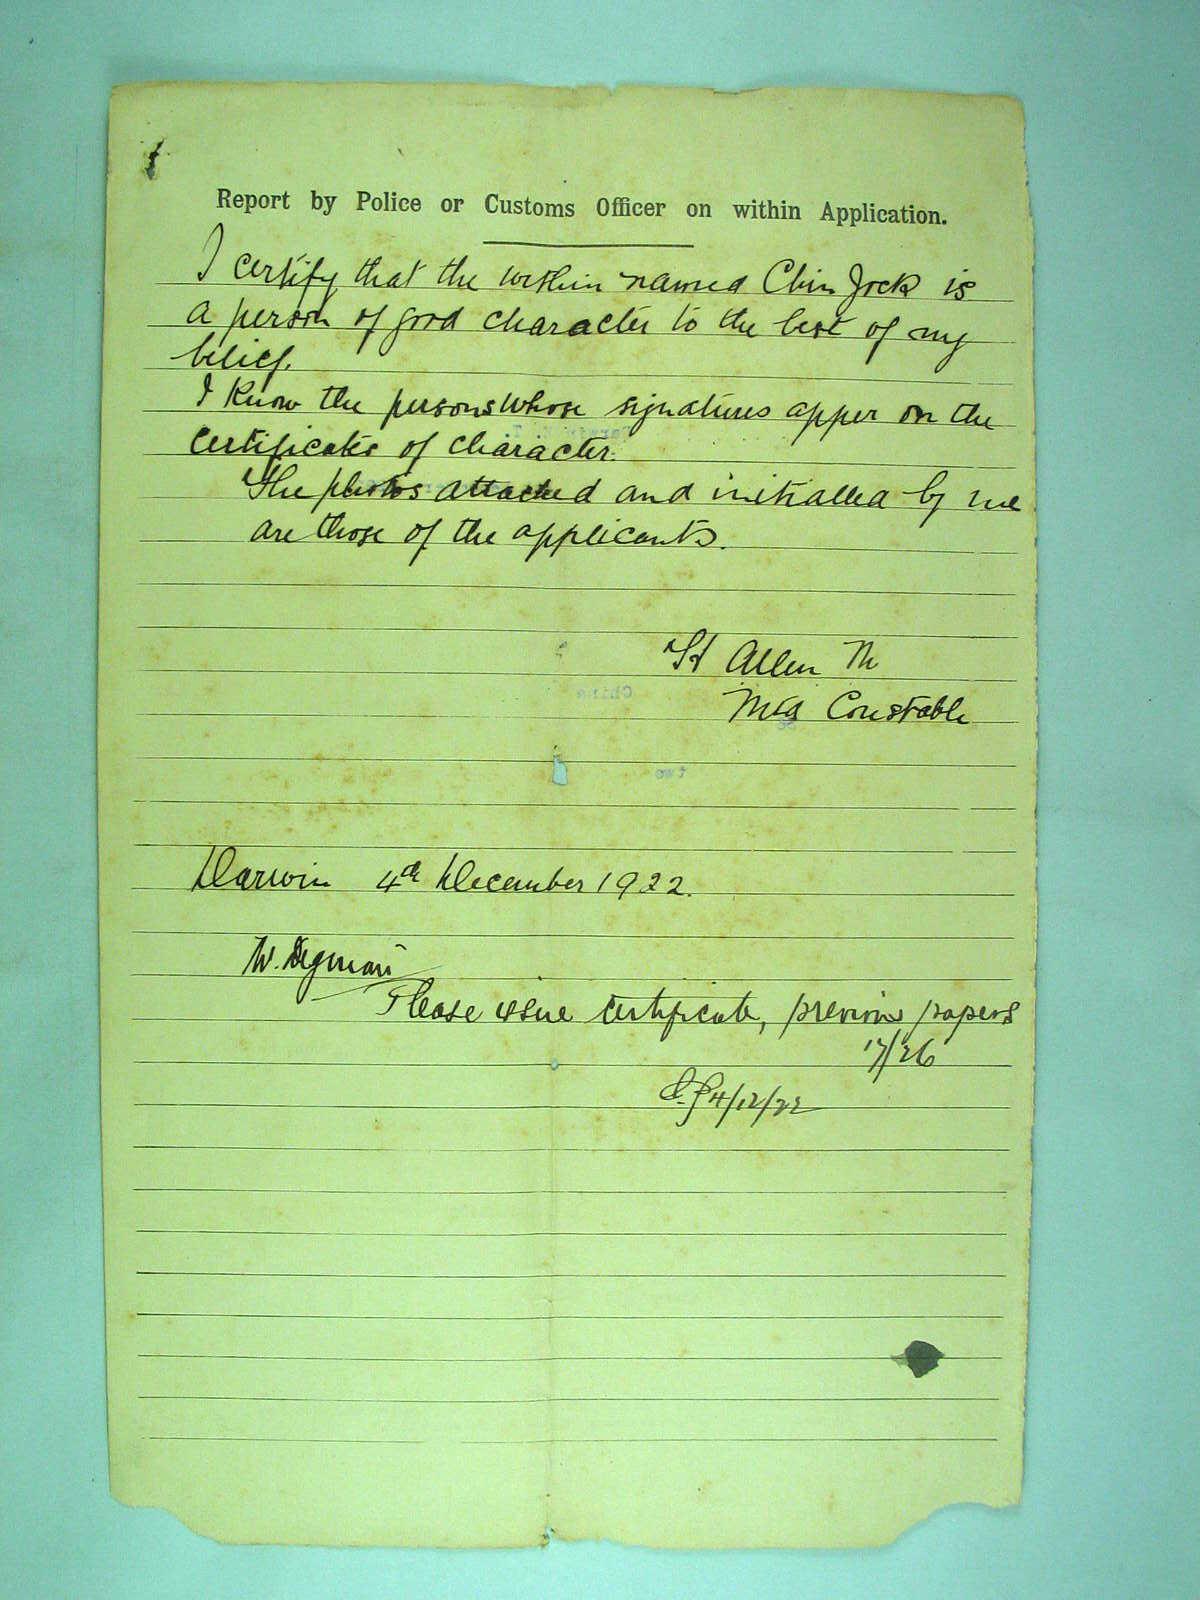 Report by Police or Customs Officer on within Application.
I certify that the within named Chin Jock is
a person of good character to the best of my
belief.
I know the persons whose signatures apper on the
certificates of character.
The photos attached and initialled by me
are those of the applicants.
Allen
Constable
Darwin 4th December 1922.
W.
Please issue certificate, previous papers
17/26
4/12/22
China
two